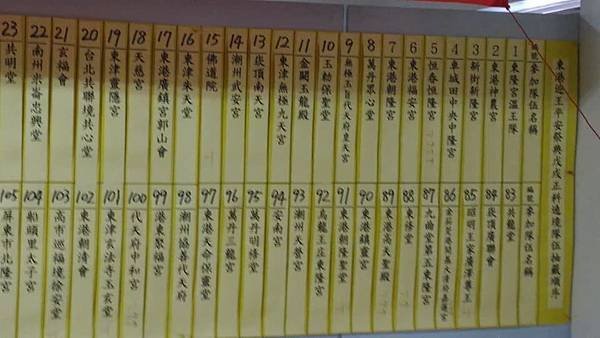 東港迎王平安祭典戊戌正科遶境隊伍抽籤順序
編號 參加隊伍名稱
1 東隆宮溫王隊
2 東港神農宮
3 新街新隆宮
4 車城田中央中隆宮
5 恆春恆隆宮
6 東港福安宮
7 東港朝隆宮
8 萬丹眾心堂
9 無極玉旨代天府皇天宮
10 玉勅保聖堂
11 金闕玉龍殿
12 東津無極九天宮
13 崁頂南天宮
14 潮州武安宮
15 佛道院
16 東津朱天堂
17 東港廣鎮宮郭山會
18 天慈宮
19 東津靈隱宮
20 台北共聯境共心堂
21 玄福會
22 南州米崙忠興堂
23 共明堂
編號 參加隊伍名稱
83 共龍堂
84 崁頂普聯會
85 昭明王家廣澤尊王
86
87 九曲堂第五東隆宮
88 東修堂
89 東港高天聖殿
90 東港鎮靈宮
91 東港朝隆聖堂
92 烏龍王庄東隆宮
93 潮州天營宮
94 安南宮
95 萬丹明修堂
96 萬丹三龍宮
97 東港天命保靈堂
98 潮州協善代天府
99 港東聚福宮
100 代天府中和宮
101 東津玄法寺玉玄堂
102 東港朝清會
103 高市巡福境徐安堂
104 船頭里太子宮
105 屏東市北隆宮